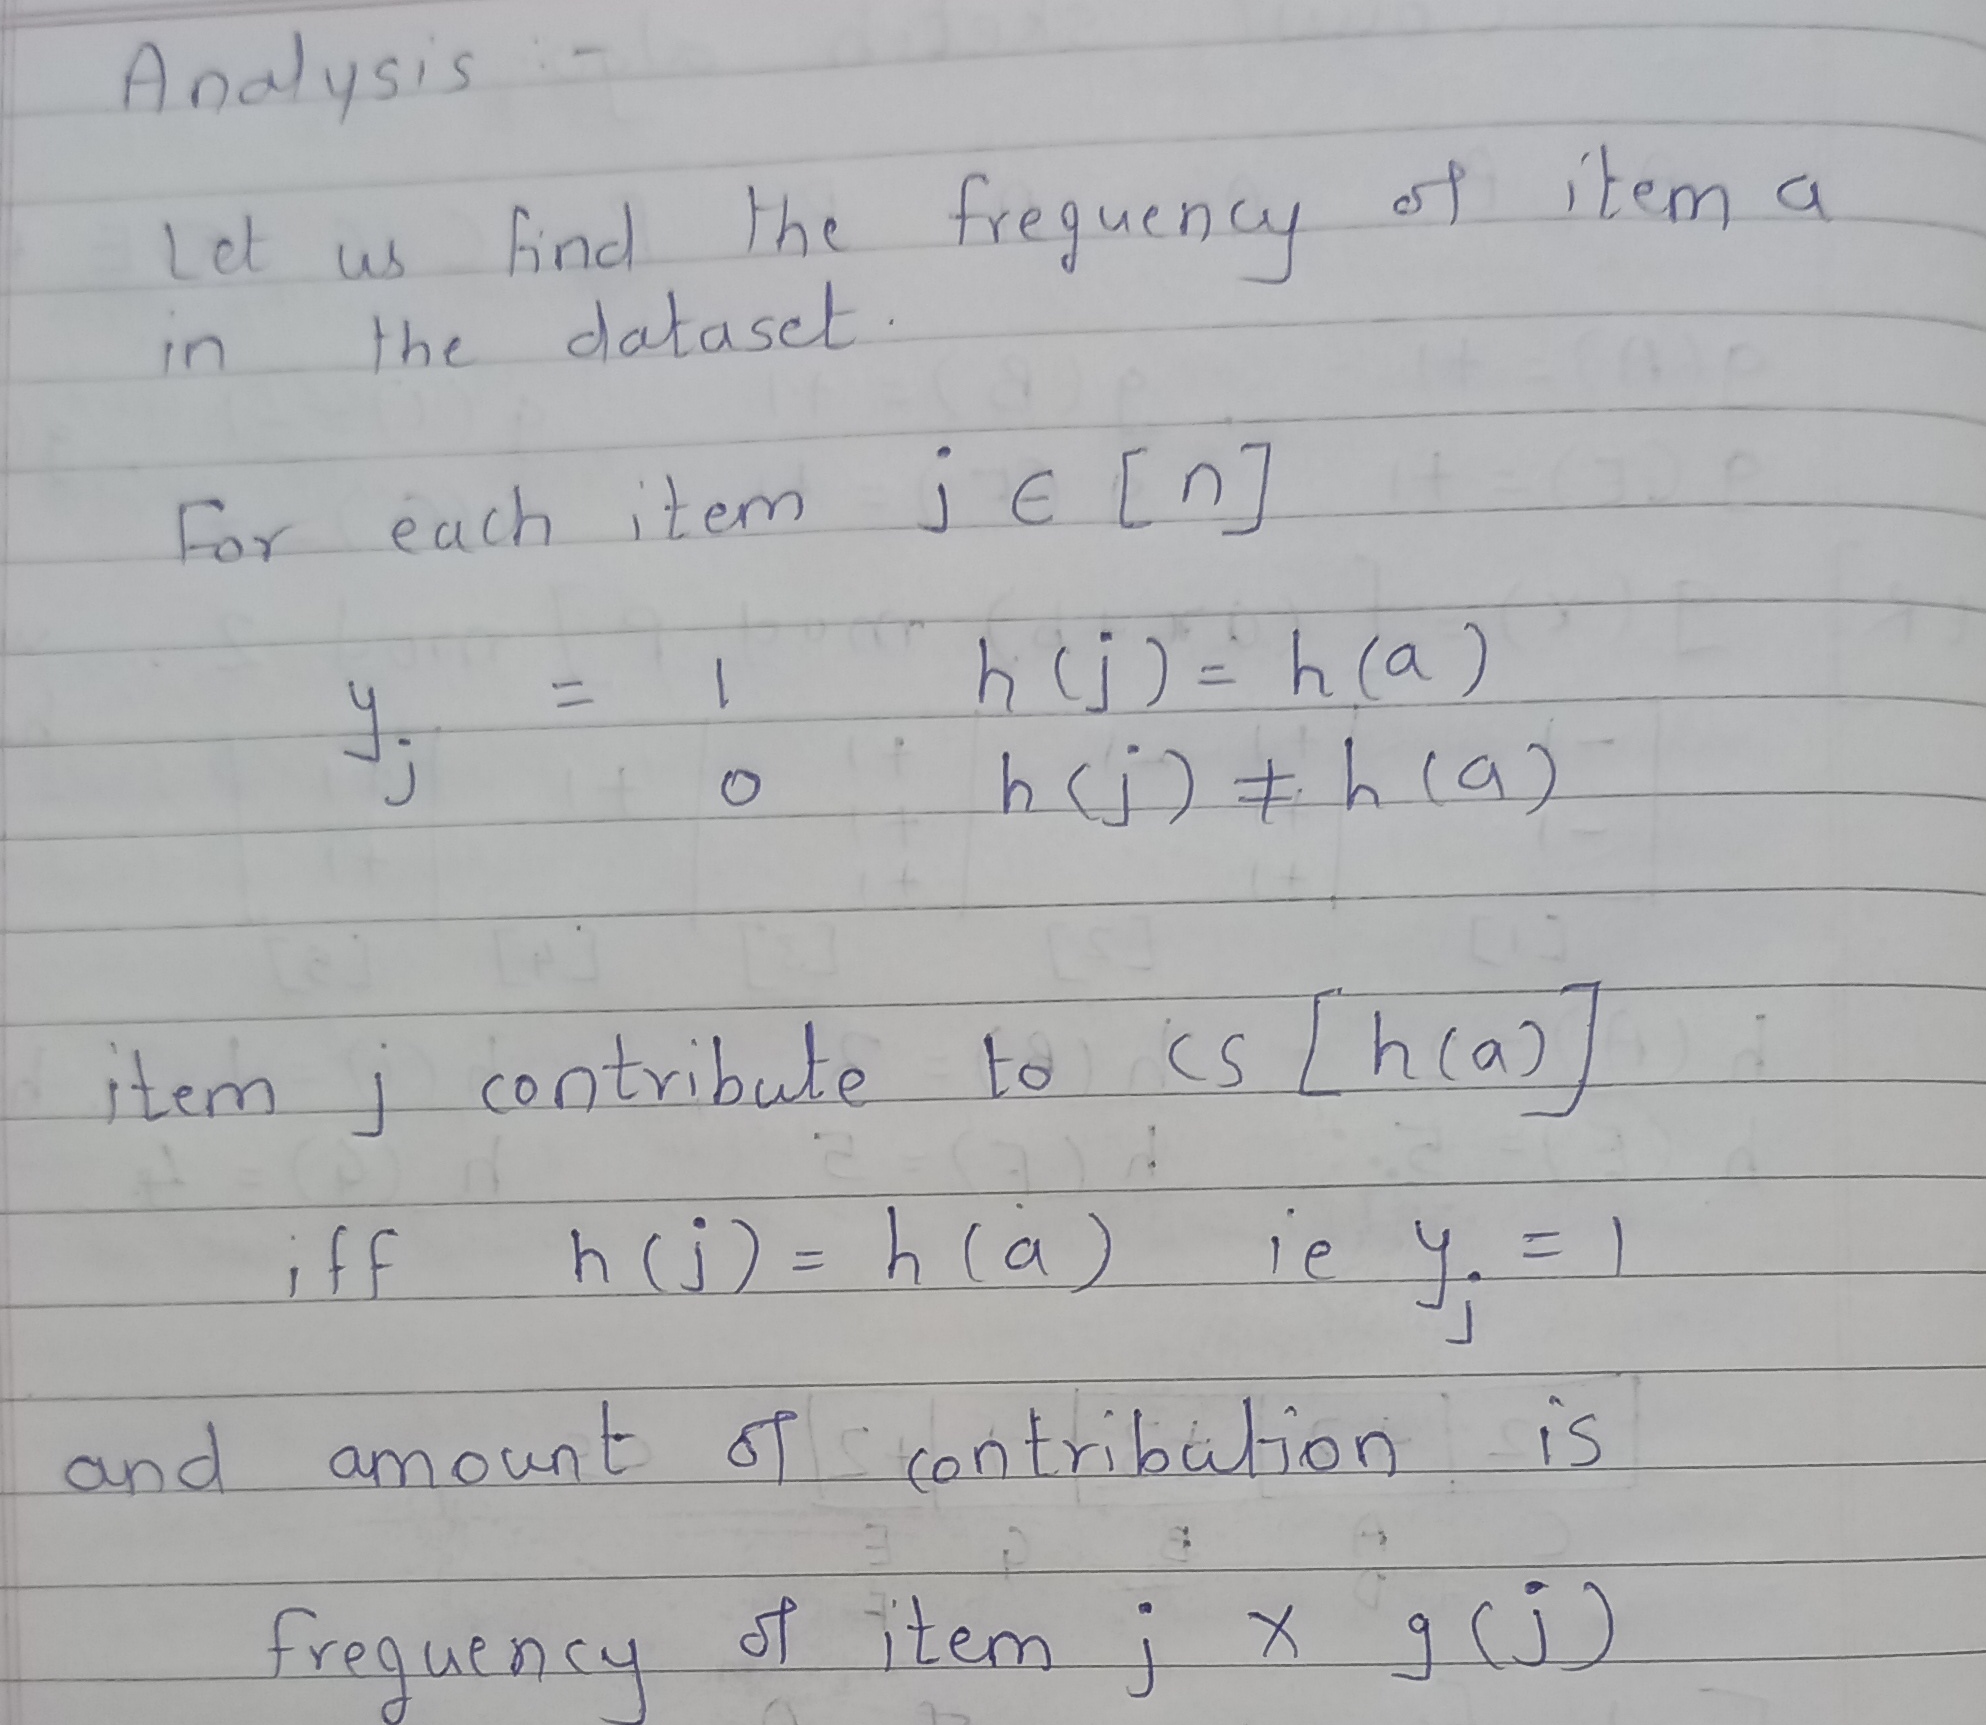 Analysis :-
Let us find the frequency of item a
in the dataset.
For each item j ∈ [n]
y_j = 1 h(j) = h(a)
0 h(j) ≠ h(a)
item j contribute to CS [h(a)]
iff h(j) = h(a) ie y_j = 1
and amount of contribution is
frequency of item j x g(j)